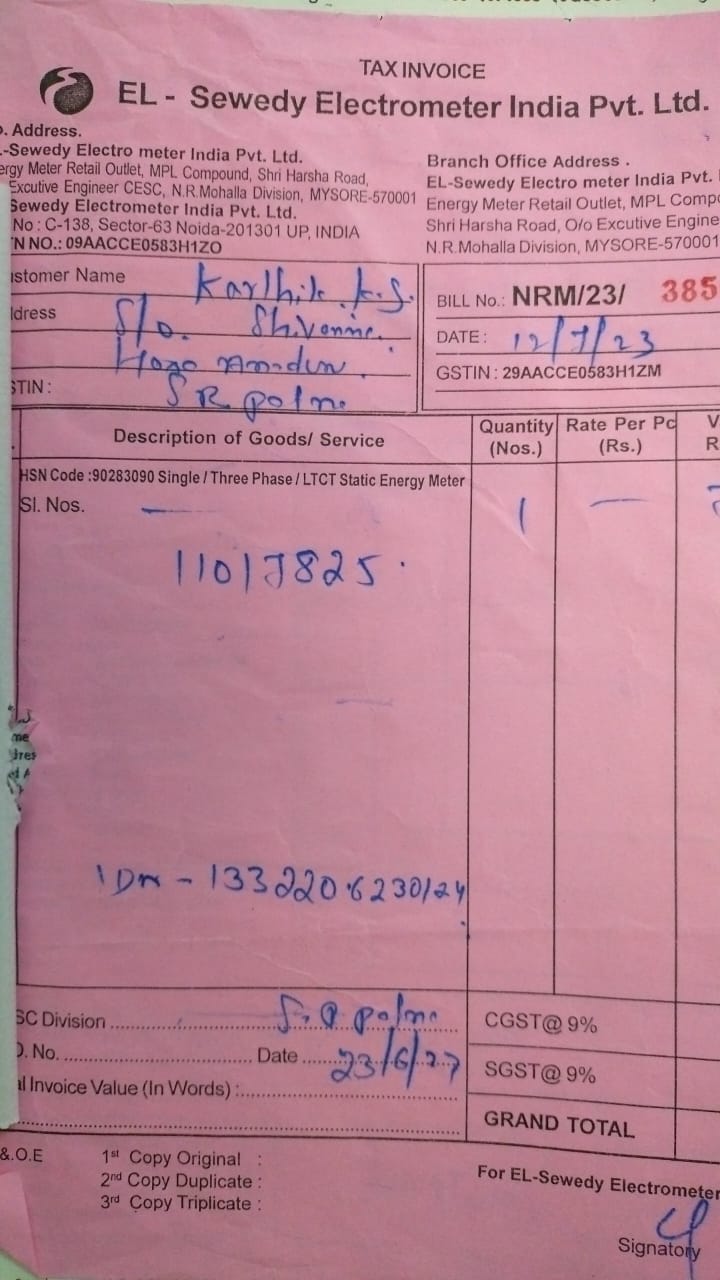 TAX INVOICE
EL - Sewedy Electrometer India Pvt. Ltd.
. Address.
-Sewedy Electro meter India Pvt. Ltd.
ergy Meter Retail Outlet, MPL Compound, Shri Harsha Road,
Excutive Engineer CESC, N.R.Mohalla Division, MYSORE-570001
Sewedy Electrometer India Pvt. Ltd.
No : C-138, Sector-63 Noida-201301 UP, INDIA
N NO.: 09AACCE0583H1ZO
Branch Office Address .
EL-Sewedy Electro meter India Pvt.
Energy Meter Retail Outlet, MPL Compo
Shri Harsha Road, O/o Excutive Engine
N.R.Mohalla Division, MYSORE-570001
stomer Name Karthik. k.S.
dress S/o.
STIN :
BILL No.: NRM/23/ 385
DATE : 12/7/23
GSTIN : 29AACCE0583H1ZM
Description of Goods/ Service
Quantity (Nos.)
Rate Per Pc (Rs.)
V
R
HSN Code :90283090 Single / Three Phase / LTCT Static Energy Meter
Sl. Nos. — 1 —
11017825.
me
dres
- 1332206230124
SC Division
. No. Date
al Invoice Value (In Words) :
CGST@ 9%
SGST@ 9%
GRAND TOTAL
&.O.E
1st Copy Original :
2nd Copy Duplicate :
3rd Copy Triplicate :
For EL-Sewedy Electrometer
Signatory